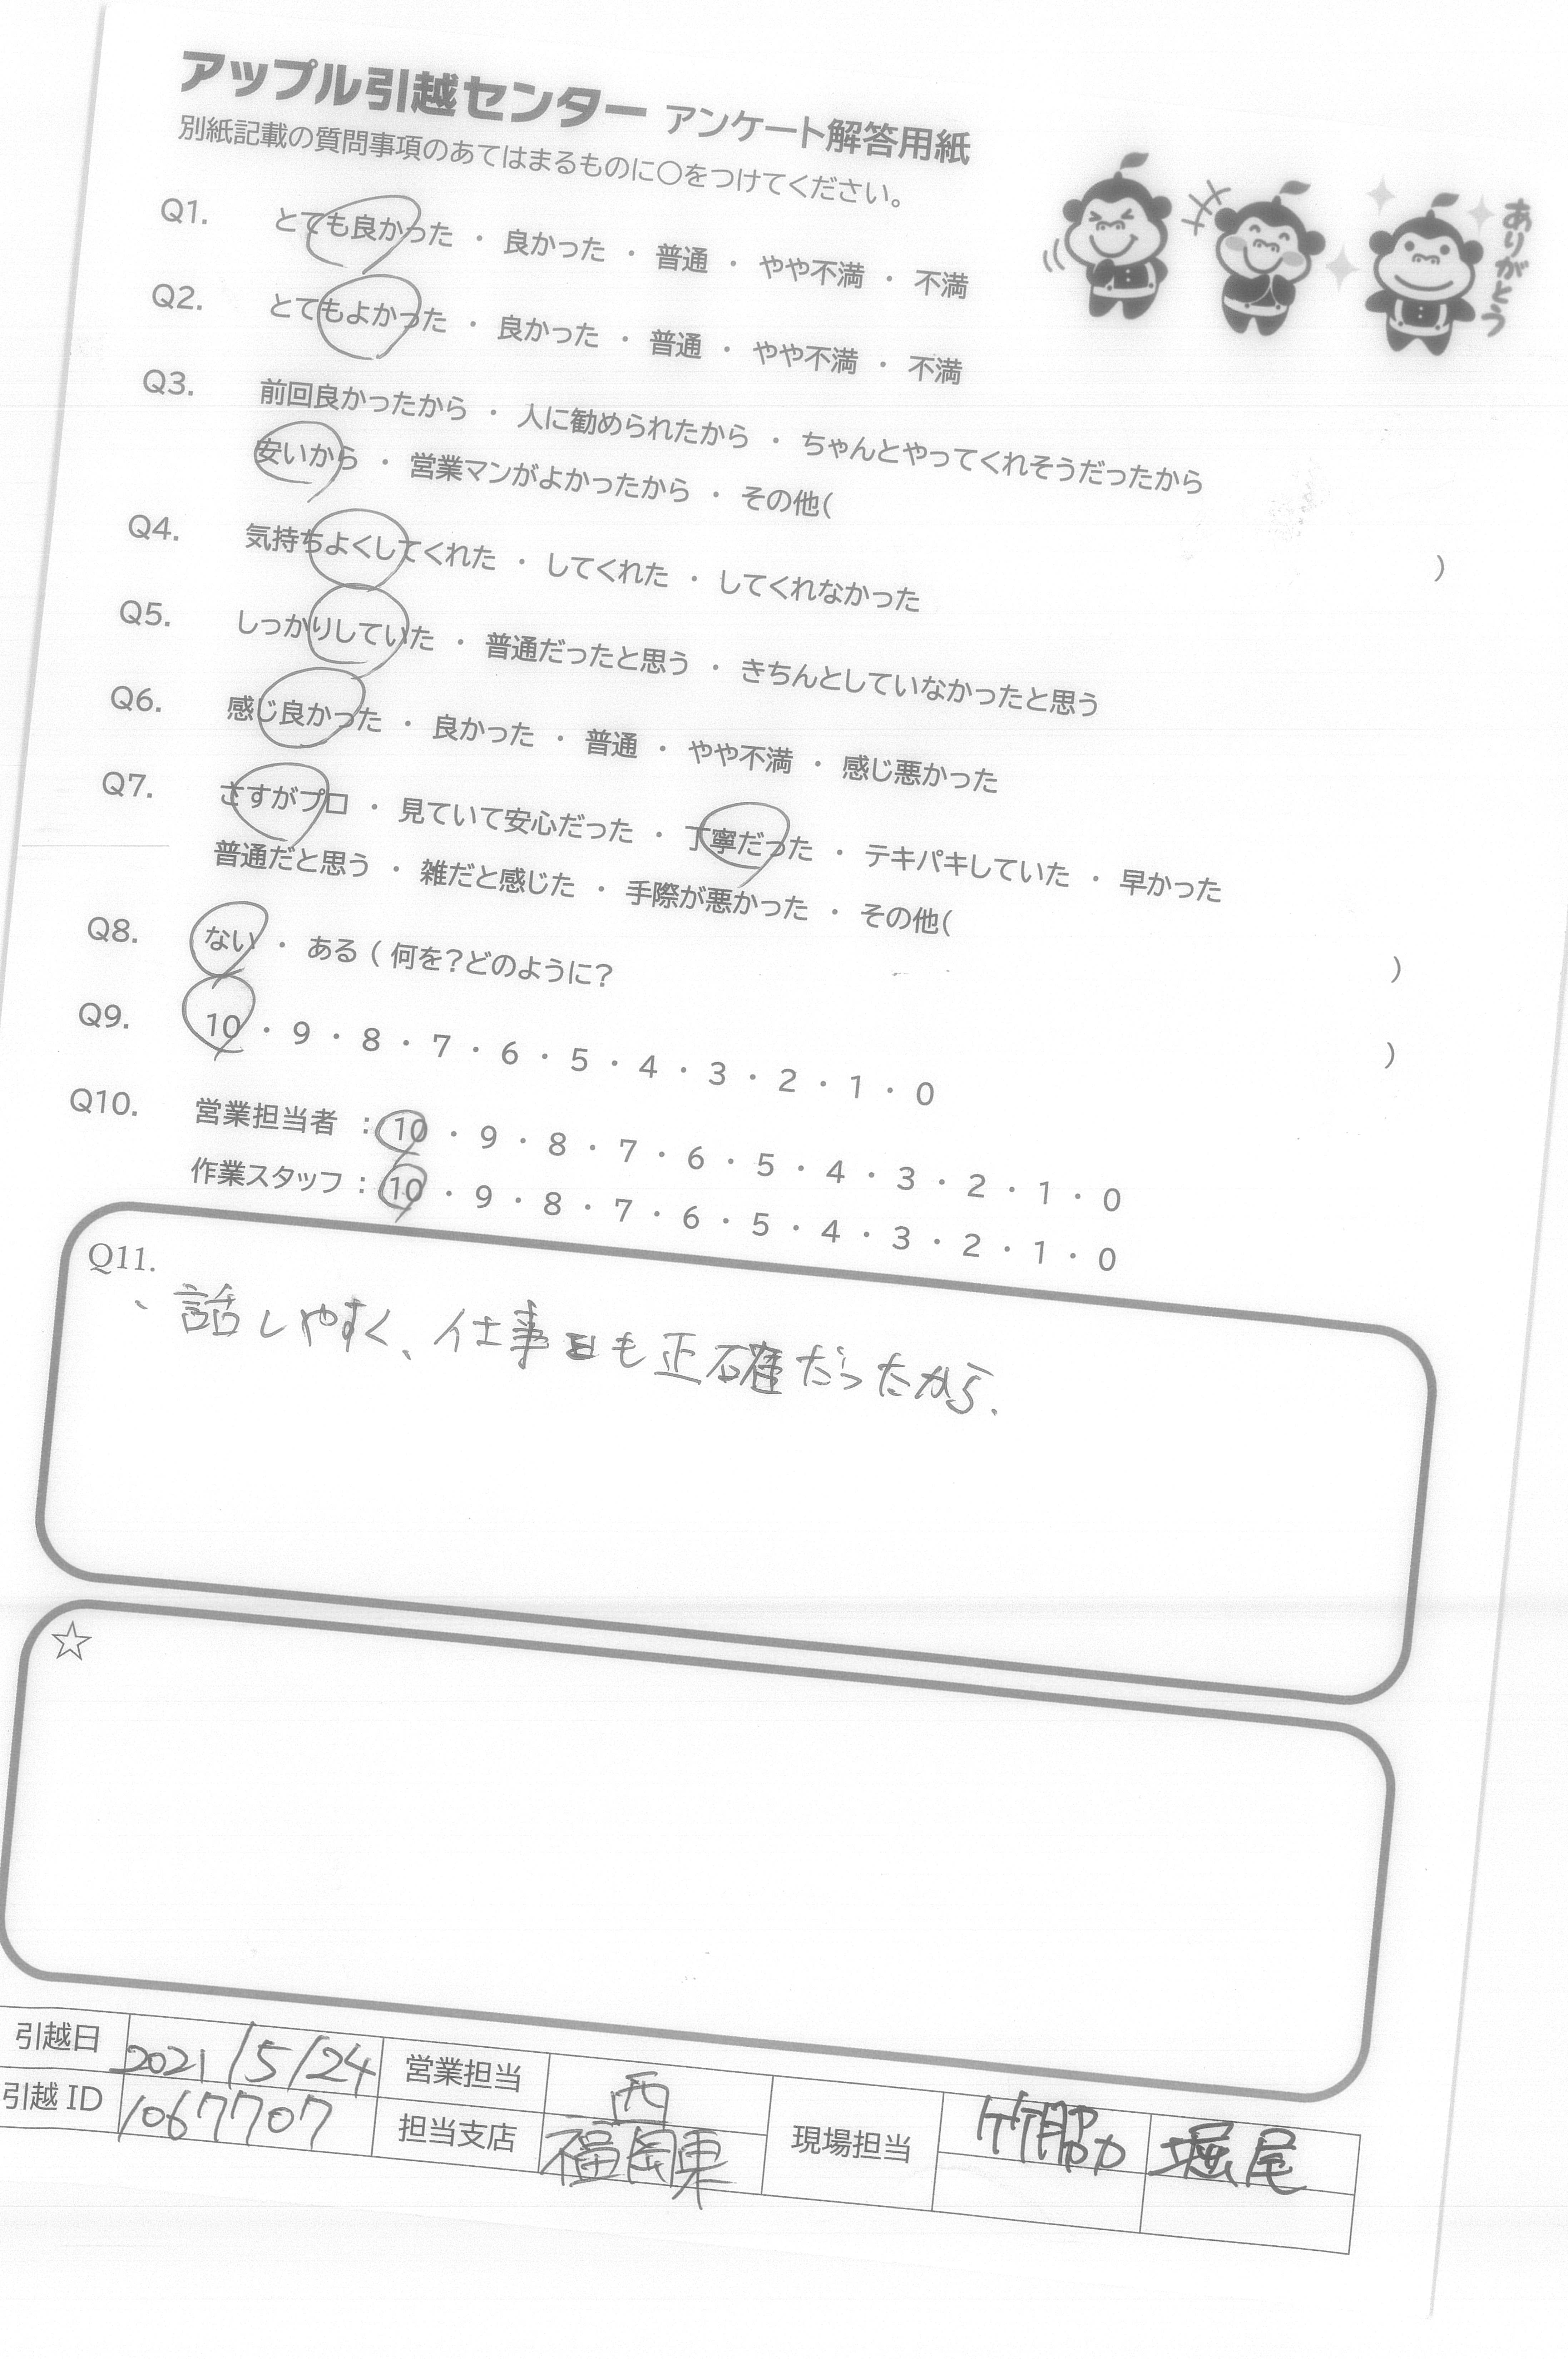 アップル引越センター アンケート解答用紙
別紙記載の質問事項のあてはまるものに○をつけてください。
ありがとう
Q1. とても良かった ・ 良かった ・ 普通 ・ やや不満 ・ 不満
Q2. とてもよかった ・ 良かった ・ 普通 ・ やや不満 ・ 不満
Q3. 前回良かったから ・ 人に勧められたから ・ ちゃんとやってくれそうだったから
安いから ・ 営業マンがよかったから ・ その他( )
Q4. 気持ちよくしてくれた ・ してくれた ・ してくれなかった
Q5. しっかりしていた ・ 普通だったと思う ・ きちんとしていなかったと思う
Q6. 感じ良かった ・ 良かった ・ 普通 ・ やや不満 ・ 感じ悪かった
Q7. さすがプロ ・ 見ていて安心だった ・ 丁寧だった ・ テキパキしていた ・ 早かった
普通だと思う ・ 雑だと感じた ・ 手際が悪かった ・ その他( )
Q8. ない ・ ある ( 何を?どのように? )
Q9. 10 ・ 9 ・ 8 ・ 7 ・ 6 ・ 5 ・ 4 ・ 3 ・ 2 ・ 1 ・ 0
Q10. 営業担当者 : 10 ・ 9 ・ 8 ・ 7 ・ 6 ・ 5 ・ 4 ・ 3 ・ 2 ・ 1 ・ 0
作業スタッフ : 10 ・ 9 ・ 8 ・ 7 ・ 6 ・ 5 ・ 4 ・ 3 ・ 2 ・ 1 ・ 0
Q11.
、話しやすく、仕事も正確だったから.
☆
引越日 2021/5/24 営業担当 西 現場担当 竹脇 堀尾
引越ID 1067707 担当支店 福岡東